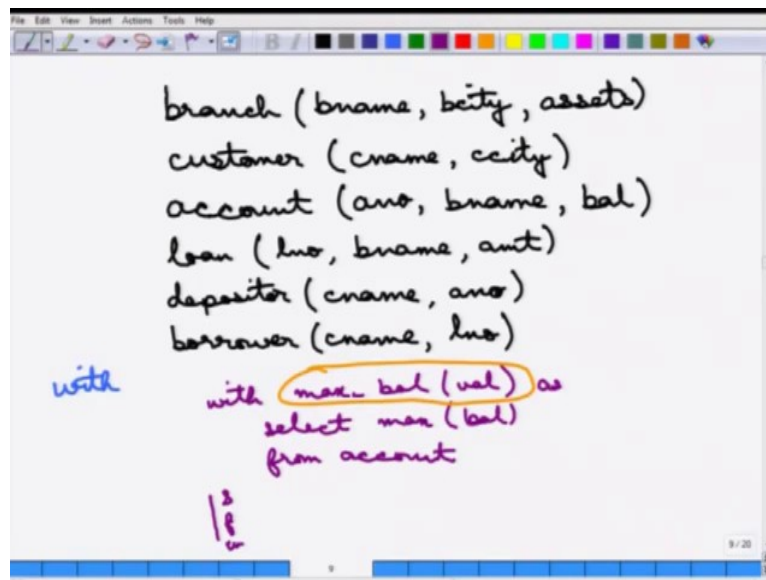 File Edit View Insert Actions Tools Help
branch (bname, bcity, assets)
customer (cname, ccity)
account (ano, bname, bal)
loan (lno, bname, amt)
depositor (cname, ano)
borrower (cname, lno)
with
with max_bal (val) as
select max (bal)
from account
s
f
w
9/20
9